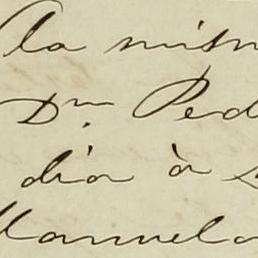 la mism
Dn. Ped
dia à
Manuela